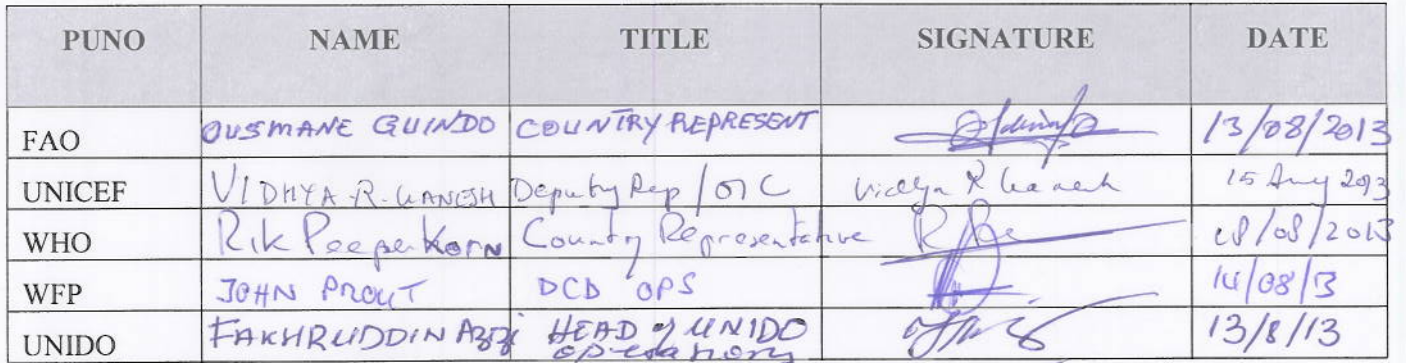 PUNO NAME TITLE SIGNATURE DATE
FAO OUSMANE GUINDO COUNTRY REPRESENT 13/08/2013
UNICEF VIDHYA R. GANESH Deputy Rep / OIC Vidhya R Ganesh 15 Aug 2013
WHO Rik Peeperkorn Country Representative /08/2013
WFP JOHN PROUT DCD OPS 14/08/13
UNIDO FAKHRUDDIN Azizi HEAD of UNIDO 13/8/13
operations